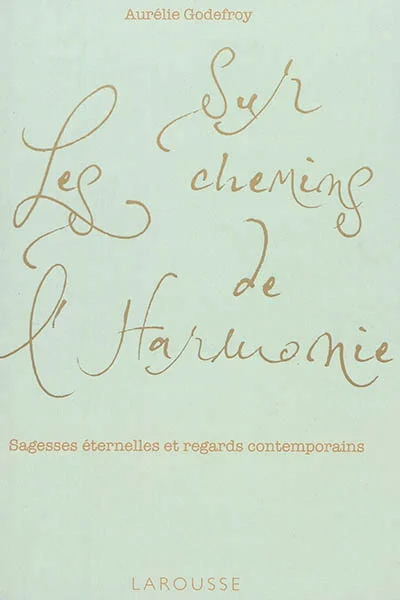 Aurélie Godefroy
Sur
Les chemins
de
l'Harmonie
Sagesses éternelles et regards contemporains
LAROUSSE